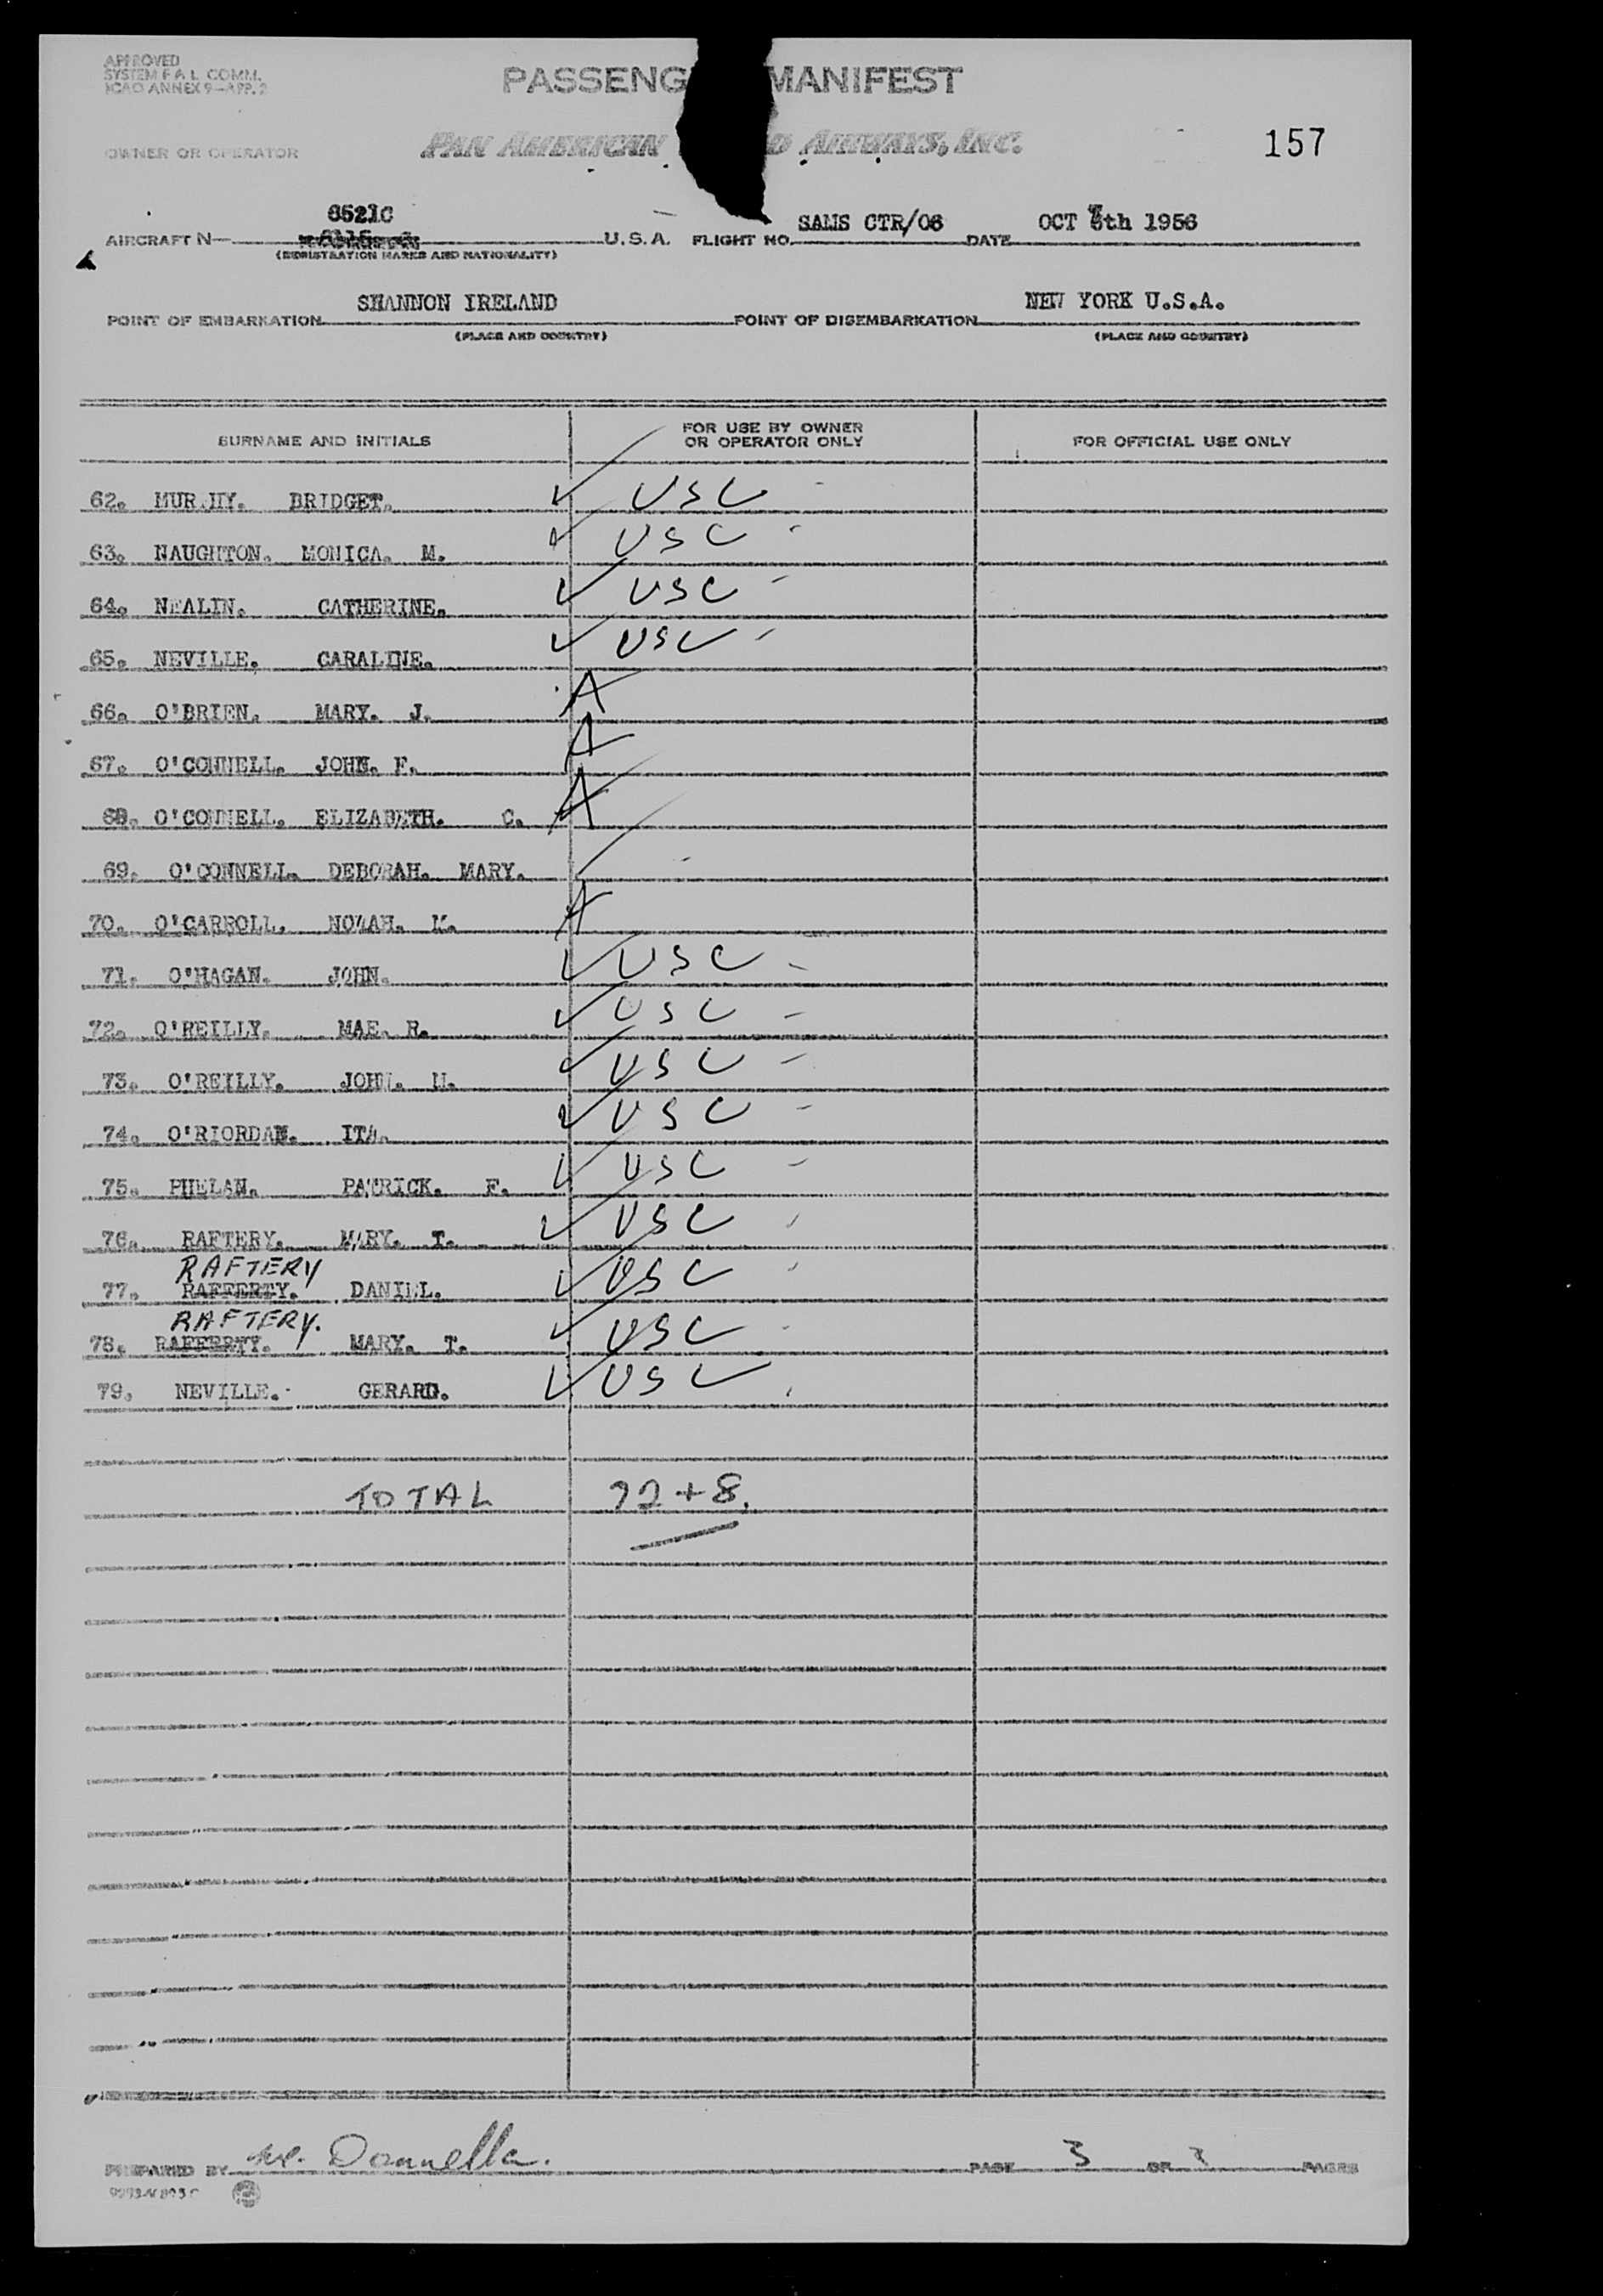 APPROVED
SYSTEM F A L COMM.
ICAO ANNEX 9—APP. 2
PASSENG MANIFEST
OWNER OR OPERATOR
PAN AMERICAN D AIRWAYS, INC.
157
6521C
AIRCRAFT N— U.S.A. FLIGHT NO. SAMS CTR/06 DATE OCT 7th 1956
(REGISTRATION MARKS AND NATIONALITY)
POINT OF EMBARKATION SHANNON IRELAND POINT OF DISEMBARKATION NEW YORK U.S.A.
(PLACE AND COUNTRY) (PLACE AND COUNTRY)
SURNAME AND INITIALS FOR USE BY OWNER OR OPERATOR ONLY FOR OFFICIAL USE ONLY
62. MUR HY. BRIDGET. ✓ USC -
63. NAUGHTON. MONICA. M. ✓ USC -
64. NEALIN. CATHERINE. ✓ USC -
65. NEVILLE. CARALINE. ✓ USC -
66. O'BRIEN. MARY. J. A
67. O'CONNELL. JOHN. F. A
68. O'CONNELL. ELIZABETH. C. A
69. O'CONNELL. DEBORAH. MARY. -
70. O'CARROLL. NORAH. M. A
71. O'HAGAN. JOHN. ✓ USC -
72. O'REILLY. MAE. R. ✓ USC -
73. O'REILLY. JOHN. M. ✓ USC -
74. O'RIORDAN. ITA. ✓ USC -
75. PHELAN. PATRICK. F. ✓ USC -
76. RAFTERY. MARY. T. ✓ USC -
RAFTERY
77. RAFFERTY. DANIEL. ✓ USC -
RAFTERY.
78. RAFFERTY. MARY. T. ✓ USC -
79. NEVILLE. GERARD. ✓ USC
TOTAL 72+8.
PREPARED BY Donnella. PAGE 3 OF 3 PAGES